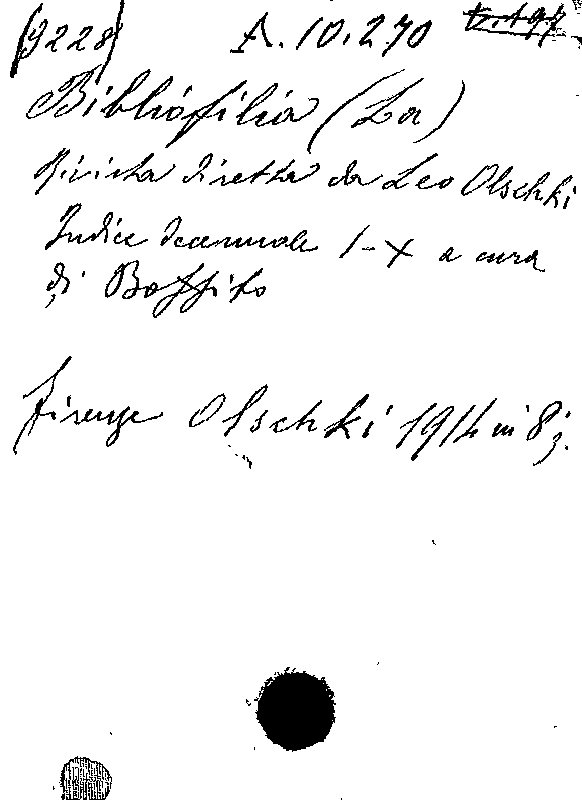 (9228) A.10.270
Bibliofilia (La)
Rivista diretta da Leo Olschki
Indice decennale I-X a cura
di Boffito
Firenze Olschki 1914 in 8°